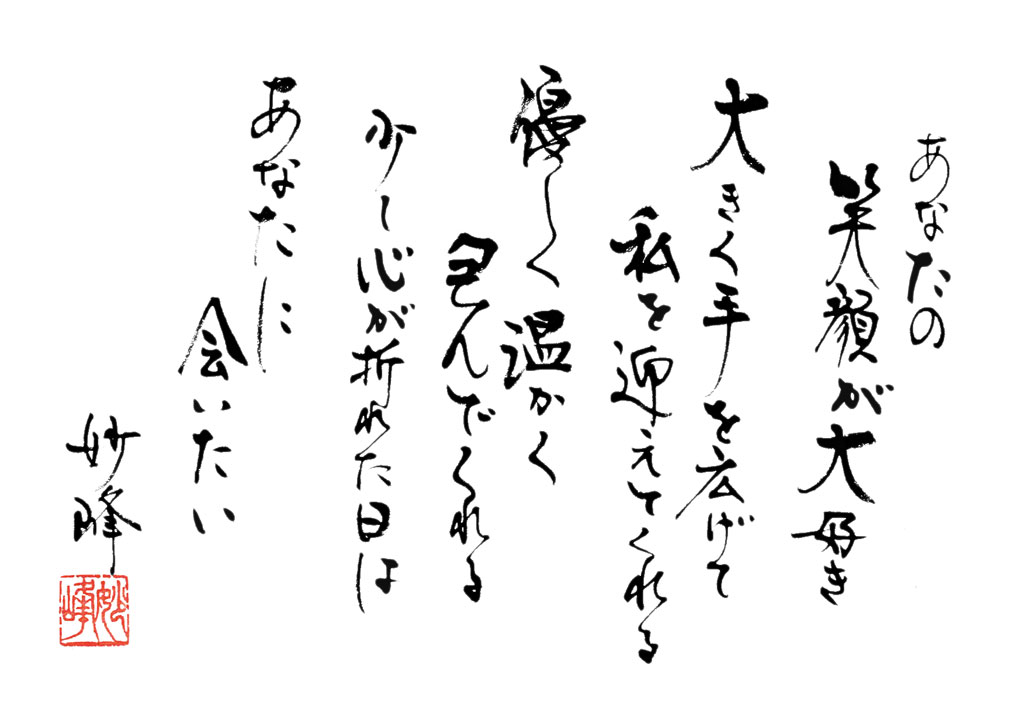 あなたの
笑顔が大好き
大きく手を広げて
私を迎えてくれる
優しく温かく
包んでくれる
少し心が折れた日は
あなたに
会いたい
妙峰
妙峰